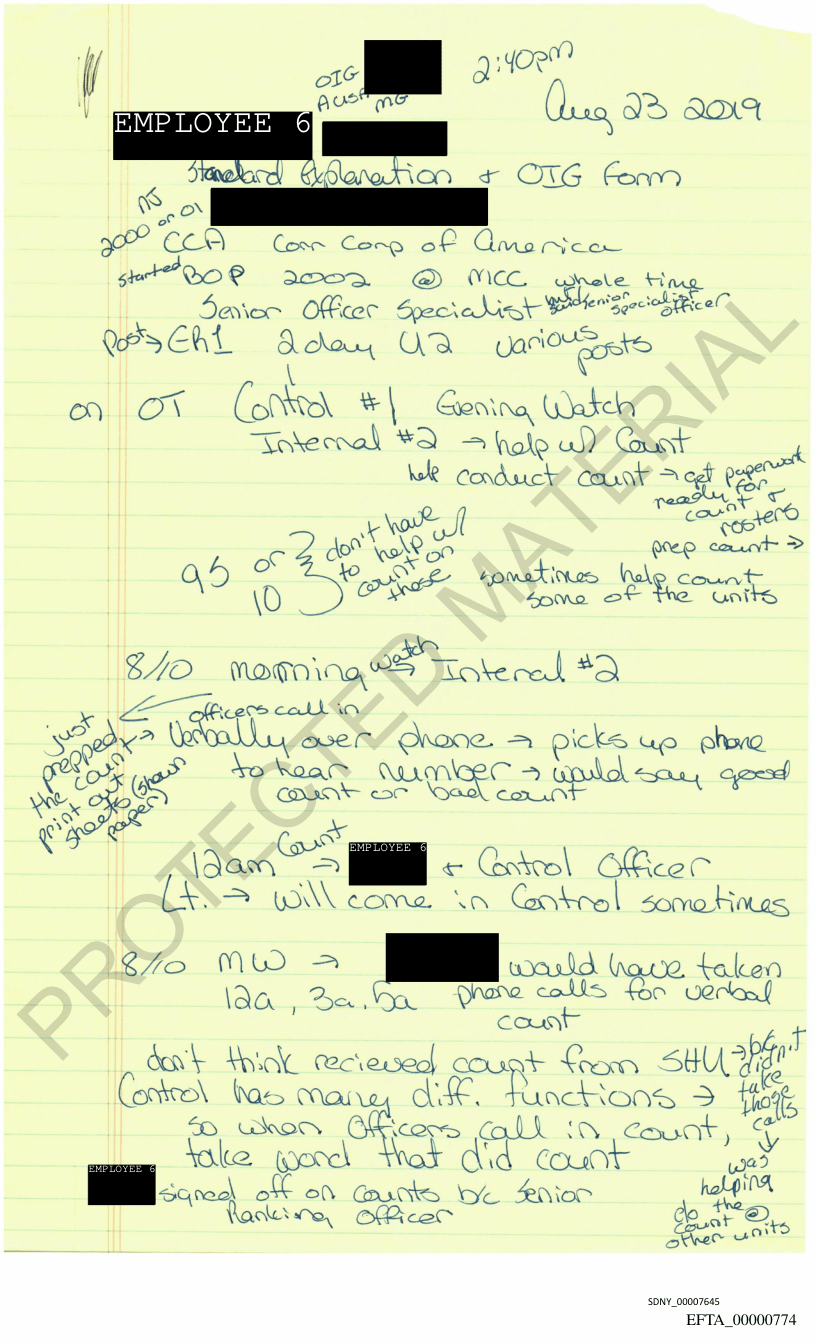 OIG
2:40pm
AUSA MG
Aug 23 2019
EMPLOYEE 6
Standard Explanation & OIG Form
NJ
2000 or 01
CCA Corr Corp of America
started BOP 2002 @ MCC whole time
Senior Officer Specialist
senior specialist officer
Post → 2 day U2 various posts
on OT Control #1 Evening Watch
Internal #2 → help w/ Count
help conduct count → get paperwork
ready for
count &
rosters
prep count →
95 or
10
don't have
to help w/
count on
those
sometimes help count
some of the units
8/10 morning watch → Internal #2
officers call in
→ Verbally over phone → picks up phone
to hear number → would say good
count or bad count
just
prepped
the count
print out
sheets (shown
paper)
12am Count → EMPLOYEE 6 & Control Officer
Lt. → will come in Control sometimes
8/10 MW → would have taken
12a, 3a, 5a phone calls for verbal
count
don't think recieved count from SHU → b/c
didn't
take
those
calls
↓
was
helping
do the
count @
other units
Control has many diff. functions →
so when Officers call in count,
take word that did count
EMPLOYEE 6 signed off on counts b/c senior
Ranking Officer
PROTECTED MATERIAL
SDNY_00007645
EFTA_00000774